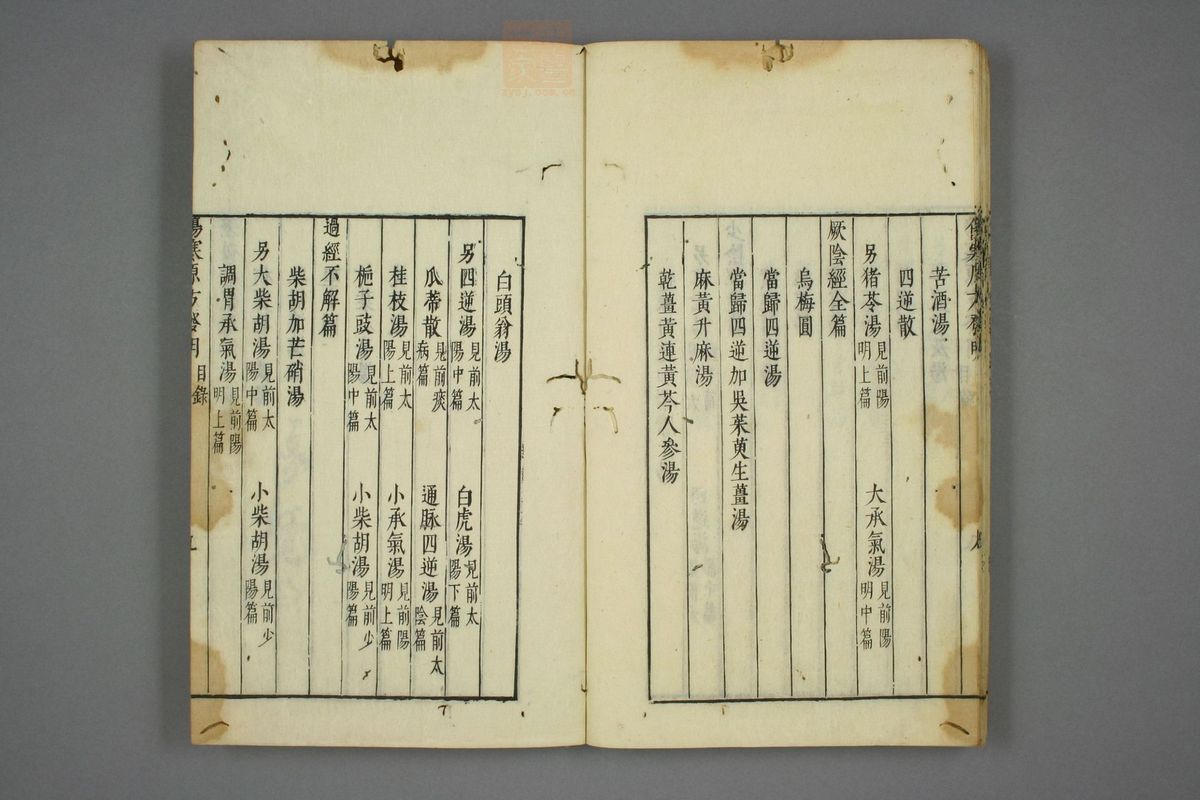 苦酒湯
四逆散
另猪苓湯見前陽明上篇 大承氣湯見前陽明中篇
厥陰經全篇
烏梅圓
當歸四逆湯
當歸四逆加吳茱萸生薑湯
麻黃升麻湯
乾薑黃連黃芩人參湯
白頭翁湯
另四逆湯見前太陽中篇 白虎湯見前太陽下篇
瓜蒂散見前痰病篇 通脉四逆湯見前太陰篇
桂枝湯見前太陽上篇 小承氣湯見前陽明上篇
栀子豉湯見前太陽中篇 小柴胡湯見前少陽篇
過經不解篇
柴胡加芒硝湯
另大柴胡湯見前太陽中篇 小柴胡湯見前少陽篇
調胃承氣湯見前陽明上篇
目錄